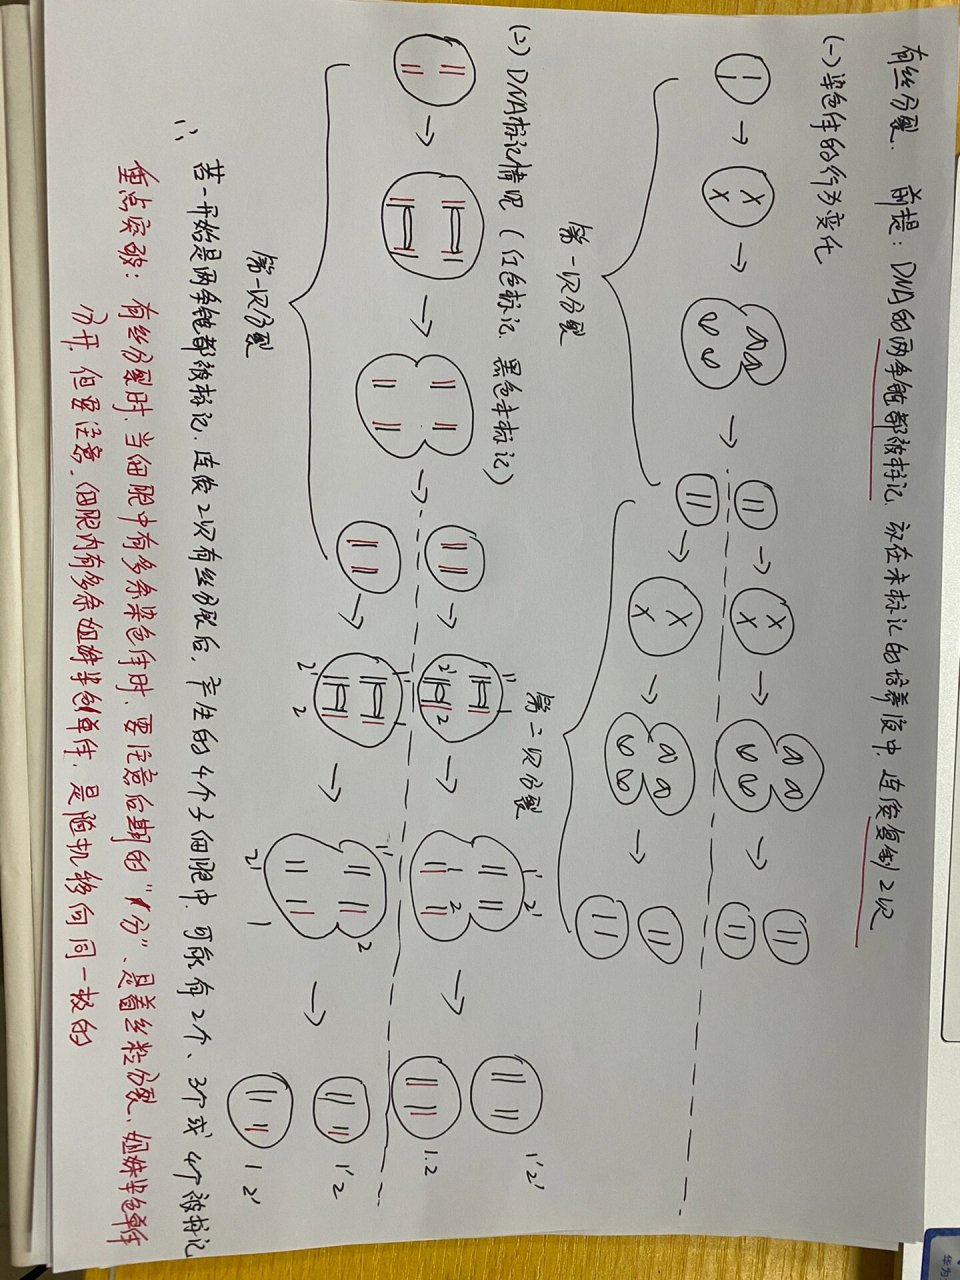 有丝分裂. 前提：DNA的两条链都被标记, 放在未标记的培养液中, 连续复制2次
(一) 染色体的行为变化
第一次分裂
第二次分裂
(二) DNA标记情况 (红色标记、黑色未标记)
第一次分裂
1' 2' 1 2
1' 2' 2
1' 2' 1 2
1' 2 2' 1
1'2'
1.2
1'2
1 2'
∴ 若一开始是两条链都被标记, 连续2次有丝分裂后, 产生的4个子细胞中, 可能有2个、3个或4个被标记
重点突破：有丝分裂时, 当细胞中有多条染色体时, 要注意后期的“1分”, 是着丝粒分裂、姐妹染色单体
分开, 但要注意, 细胞内有多条姐妹染色单体, 是随机移向同一极的
华为